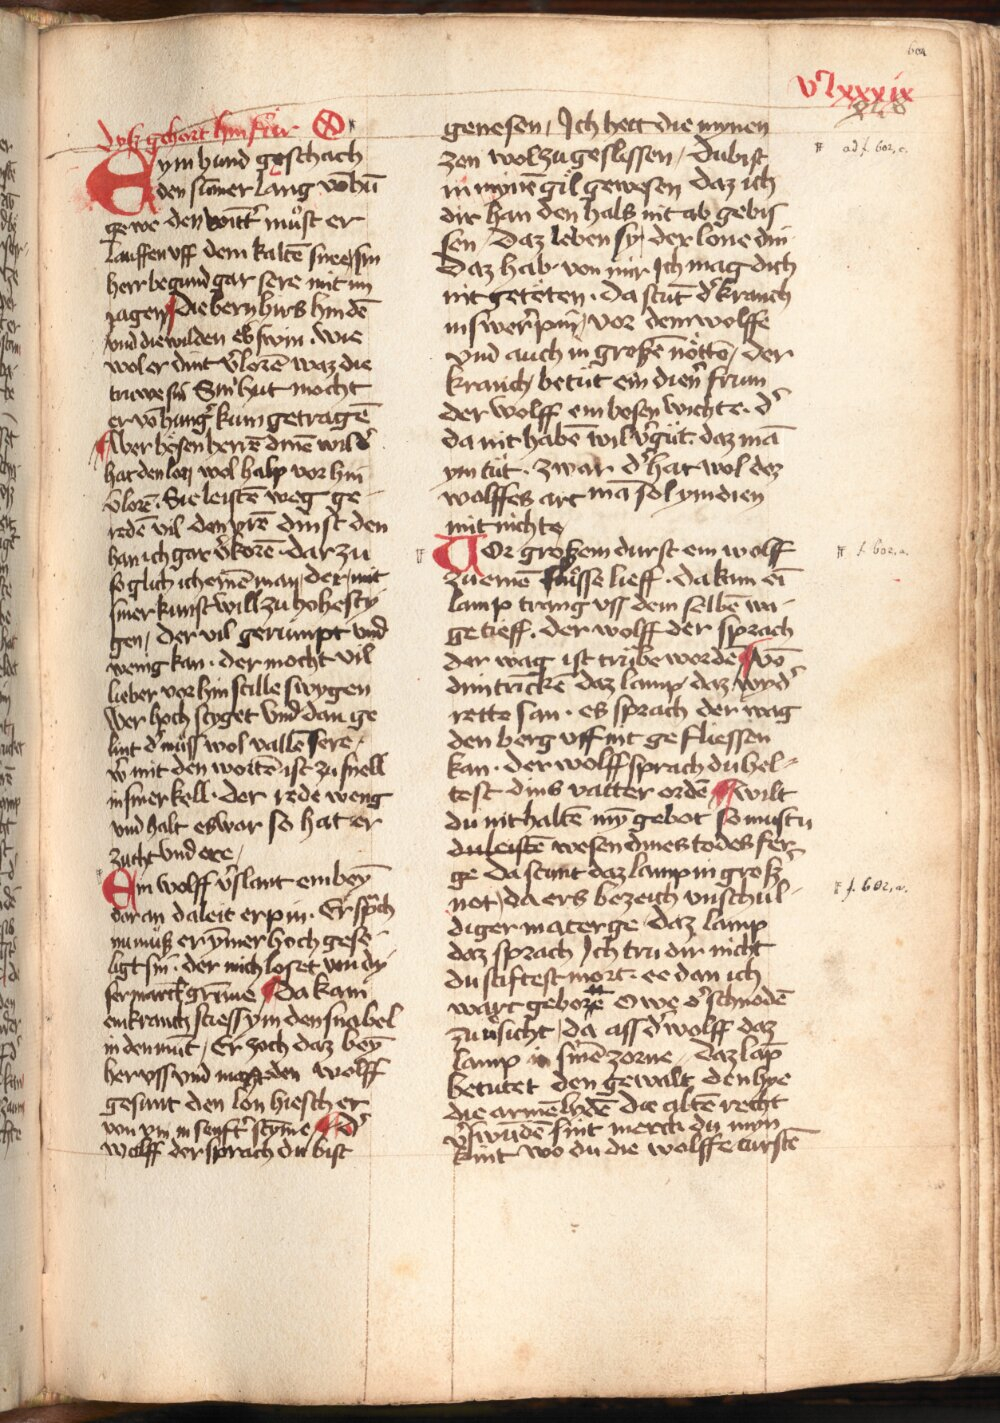 604
vᶜlxxxix
Dyß gehort hin für
Eym hund geschach
den sūmer lang vō hū
ge we den wintt' muͦst er
lauffen vff dem kaltē snee sin
herr begund gar sere mit im
jagen die bern hirs hindē
vnd die wilden eb' swin . wie
wol er dint v'lorē waz die
truwe sin Sin hut mocht
er vō hung' kum getragē
Aber boͤsen herrē dinē wil d'
hat den lon wol halp vor hin
v'lorē . Sie leistē weg ge
redē vil den yrē dinst den
han ich gar v'korē . dar zu
so glich ich einē man / der mit
siner kunst will zu hohe sty
gen / der vil gerumpt vnd
wenig kan . der mocht vil
lieber vor hin stille swygen
Wer hoch styget vnd dan ge
lint d' muͦß wol vallē sere .
w' mit den wortē ist zu snell
in siner kell . der rede weng
vnd halt es war so hat er
zucht vnd ere /
Ein wolff v'slant ein beyn
dar an da leit er pin . Er sp'ch
nu muͦß er ym̄er hoch gese
ligt sin . der mich loset von dy
ser marck grīme Da kam
ein krauch stiess ym den snabel
in den mūt / Er zoch daz beyn
her vss vnd den wolff
gesunt den lon hiesch er
von ym in senft' styme d'
wolff der sprach du bist
genesen / Ich hett die mynen
zen wol zu geslissen / du bist
in mynē giͤl gewesen daz ich
dir han den hals nit ab gebis
sen / Daz leben sy der lone din
Daz hab von mir Ich mag dich
nit getoͤten . Da stūt d' krauch
in swer' pin / vor dem wolffe
vnd auch in großē noͤtte / der
krauch betut ein dien' frun
der wolff ein bosen wichte . d'
da nit habē wil v'guͦt . daz mā
ym tuͦt . zwar d' hat wol dez
wolffes art mā sol ym dien
mit nichte
Vor großem durst ein wolff
zu einē fluͦsse lieff . da kam eī
lamp tranck vss dem selbē wa
ge tieff . der wolff der sprach
der wag ist trübe wordē vō
dim trickē daz lamp daz wyd'
rette san . es sprach der wag
den berg vff nit gefliessen
kan . der wolff sprach du hel
test dins vatter ordē wilt
du nit haltē myn gebot so mustu
du leistē wesen dines todes fer
ge da stunt daz lamp in groß'
not / da ers bezeich vnschul
diger materge daz lamp
daz sprach Ich tru dir nicht
du stiftest mort . ee dan ich
wart geborē O we d' schnodē
zu v'sicht / da ass d' wolff daz
lamp in sinē zorne / Daz lāp
betutet den gewalt den hye
die armē lydē Die altē recht
v'swūdē sint merck du myn
kint wo du die wolffe turstē
ad f. 602, c.
f. 602, a.
f. 602, a.